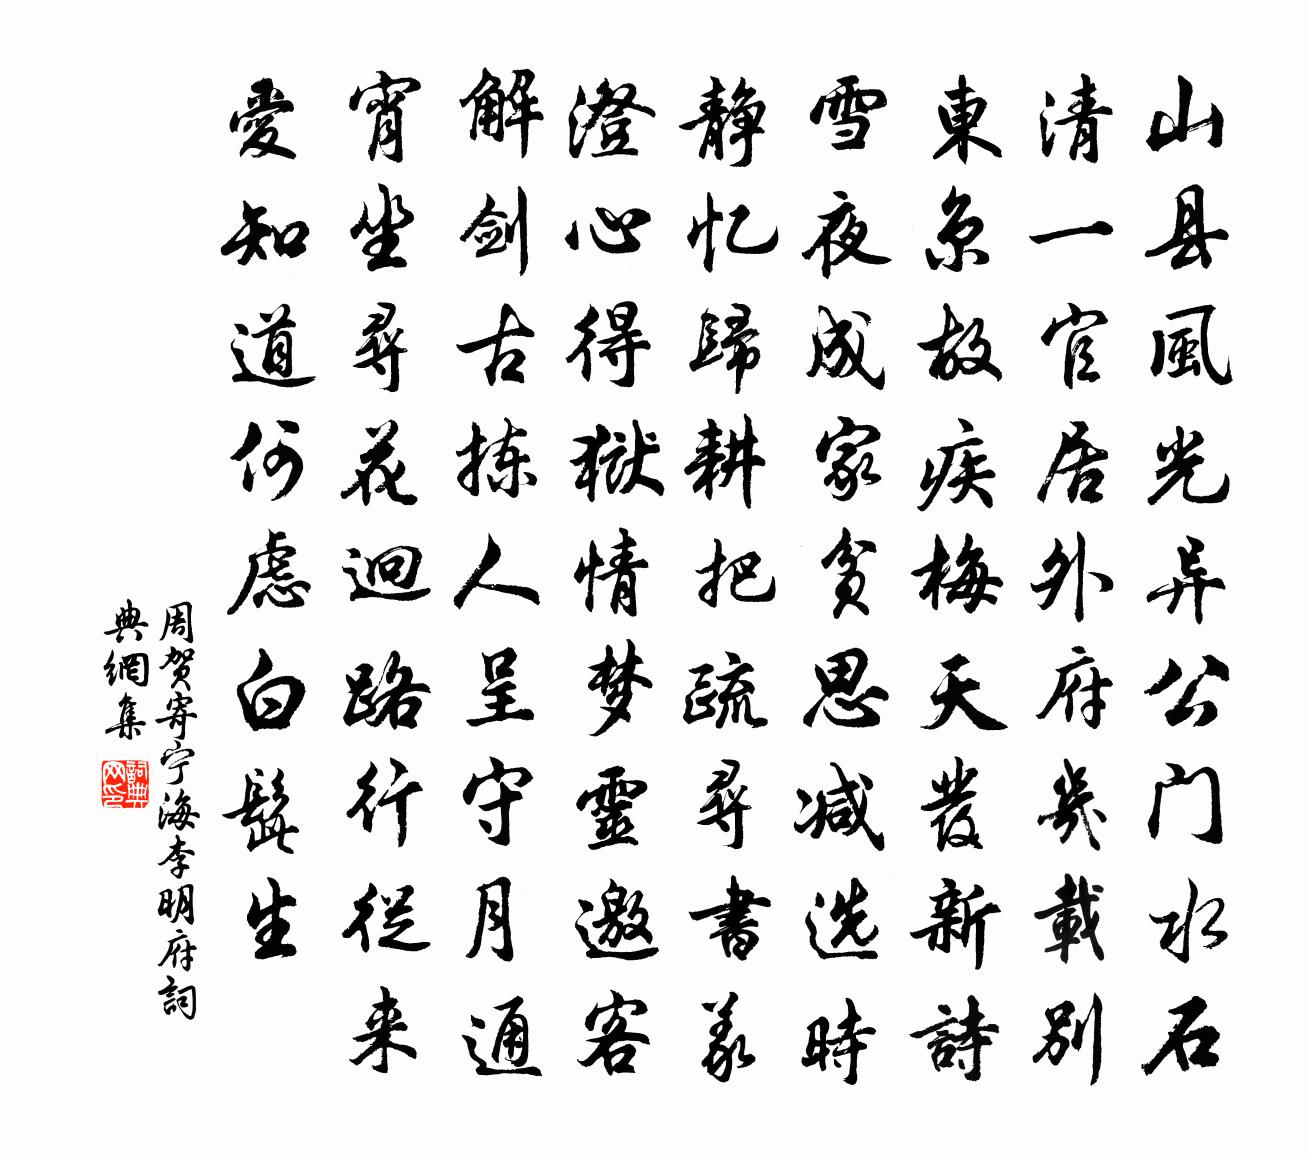 山县風光异公门水石
清一官居外府幾載别
東京故疾梅天發新詩
雪夜成家贫思减选時
静忆歸耕把疏尋書義
澄心得獄情梦靈邀客
解剑古拣人呈守月通
宵坐尋花迥路行從来
愛知道何慮白髭生
周贺寄宁海李明府詞
典網集
詞典
网印